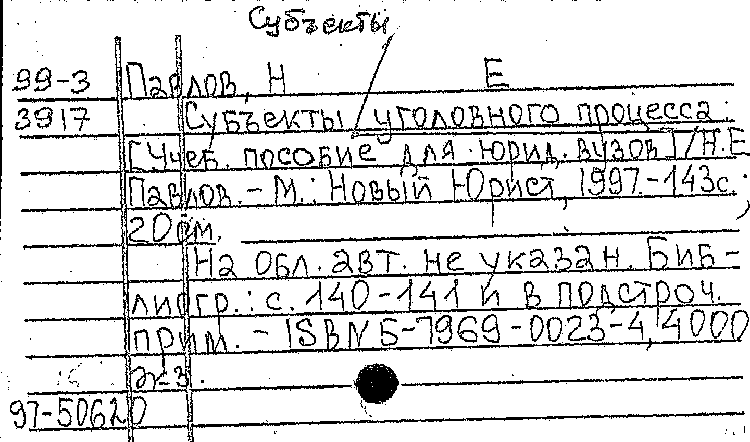 Субъекты
99-3 Павлов, Н Е
3917 Субъекты уголовного процесса:
[Учеб. пособие для юрид. вузов] / Н.Е
Павлов. - М.: Новый Юрист, 1997. - 143с.;
20см.
На обл. авт. не указан. Биб-
лиогр.: с. 140-141 и в подстроч.
прим. - ISBN 5-7969-0023-4, 4000
экз.
97-50620